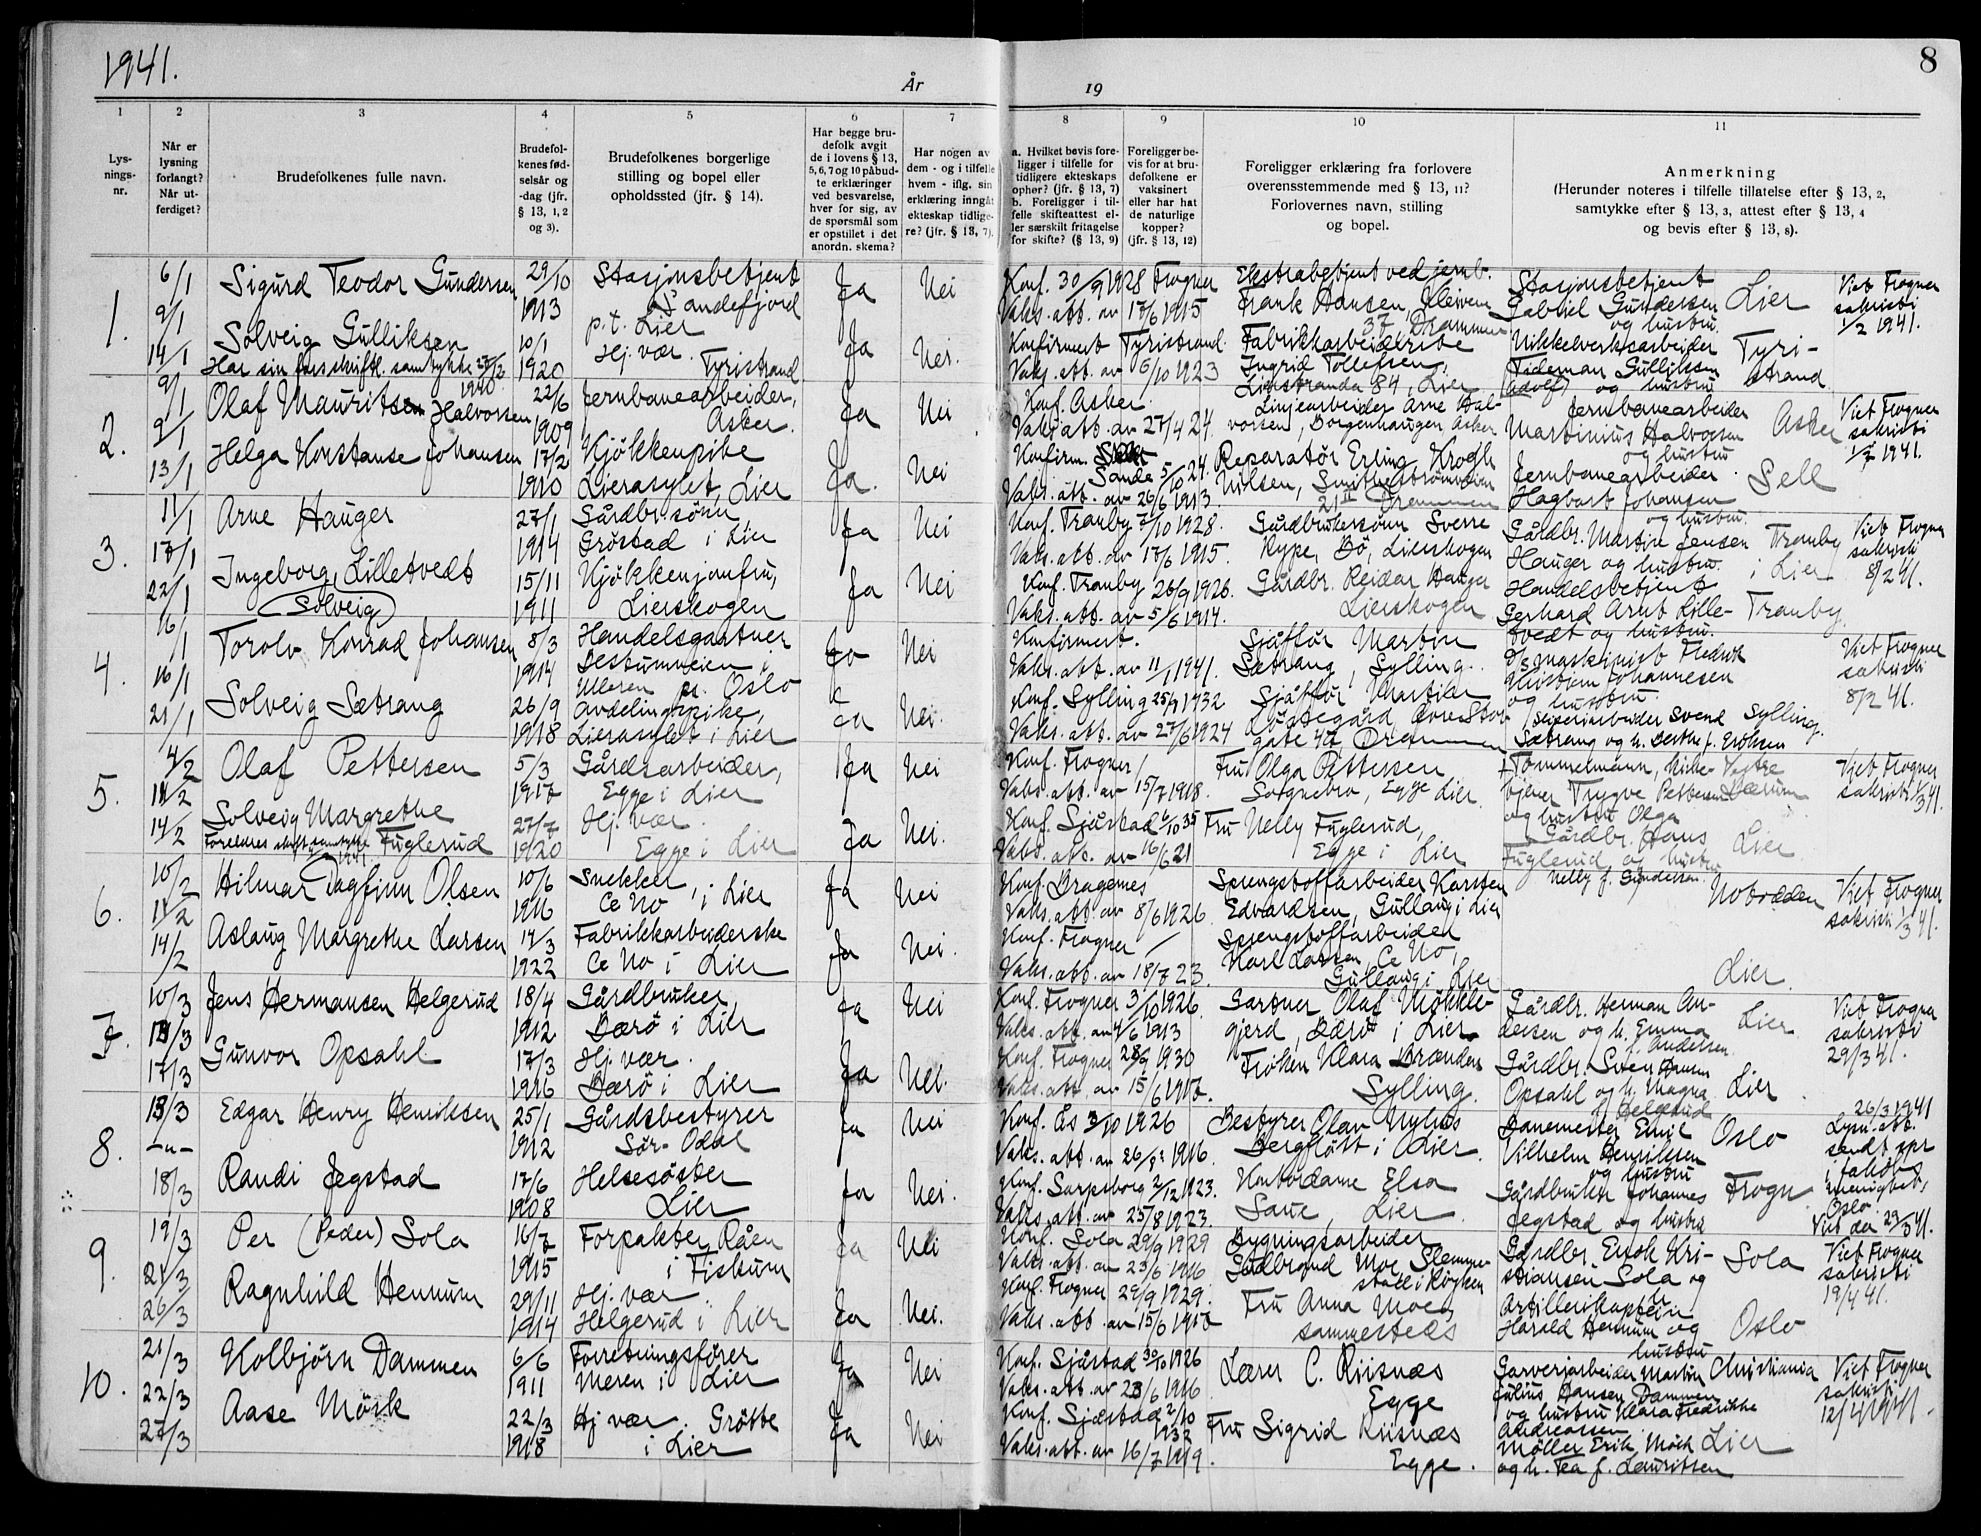 1941.
År
19
8
1
2
3
4
5
6
7
8
9
10
11
Lys-
nings-
nr.
Når er
lysning
forlangt?
Når ut-
ferdiget?
Brudefolkenes fulle navn.
Brudefol-
kenes fød-
selsår og
-dag (jfr.
§ 13, 1, 2
og 3).
Brudefolkenes borgerlige
stilling og bopel eller
opholdssted (jfr. § 14).
Har begge bru-
defolk avgit
de i lovens § 13,
5, 6, 7 og 10 påbud-
te erklæringer
ved besvarelse,
hver for sig, av
de spørsmål som
er opstillet i det
anordn. skema?
Har nogen av
dem - og i tilfelle
hvem - iflg. sin
erklæring inngåt
ekteskap tidlige-
re? (jfr. § 13, 7).
a. Hvilket bevis fore-
ligger i tilfelle for
tidligere ekteskaps
ophør? (jfr. § 13, 7)
b. Foreligger i til-
felle skifteattest el-
ler særskilt fritagelse
for skifte? (§ 13, 9)
Foreligger be-
vis for at bru-
defolkene er
vaksinert
eller har hat
de naturlige
kopper?
(jfr. § 13, 12)
Foreligger erklæring fra forlovere
overensstemmende med § 13, 11?
Forlovernes navn, stilling
og bopel.
Anmerkning
(Herunder noteres i tilfelle tillatelse efter § 13, 2,
samtykke efter § 13, 3, attest efter § 13, 4
og bevis efter § 13, 8).
1.
6/1
9/1
14/1
Sigurd Teodor Gundersen
Solveig Gulliksen
Har sin fars skriftl. samtykke 27/12
1940
29/10
1913
10/1
1920
Stasjonsbetjent
Sandefjord
p.t. Lier
Hj. vær.
Tyristrand
Ja
Ja
Nei
Nei.
Konf. 30/9 1928 Frogner
Vaks. att. av 17/6 1915
Konfirmert Tyristrand.
Vaks. att. av 6/10 1923
Ekstrabetjent ved jernb.
Frank Hansen, Kleivene
37, Drammen
Fabrikkarbeiderske
Ingrid Tollefsen,
Lierstranda 84, Lier
Stasjonsbetjent
Gabriel Gundersen
og hustru.
Lier
Nikkelverksarbeider
Tideman Gulliksen
(Adolf) og hustru
Tyri-
strand
Viet Frogner
sakristi
1/2 1941.
2.
9/1
9/1
13/1
Olaf Mauritsen Halvorsen
Helga Konstanse Johansen
22/6
1909
17/2
1910
Jernbanearbeider,
Asker.
Kjøkkenpike
Lierasylet, Lier
Ja
Ja.
Nei
Nei
Konf. Asker.
Vaks. att. av 27/4 24.
Konfirm.
Sande 5/10 24.
Vaks. att. av 26/6 1913.
Linjearbeider Arne Hal-
vorsen, Borgenhaugen, Asker
Reparatør Erling Krogh
Nilsen,
21 II Drammen
Jernbanearbeider
Martinius Halvorsen
og hustru
Asker
Jernbanearbeider
Hagbart Johansen
og hustru.
Sell
Viet Frogner
sakristi
1/2 1941.
3.
11/1
17/1
22/1
Arne Hauger
Ingeborg Lilletvedt
Solveig
27/1
1914
15/11
1911
Gårdbr. sønn,
Grøstad i Lier
Kjøkkenjomfru,
Lierskogen
Ja
Ja
Nei
Nei
Konf. Tranby 7/10 1928.
Vaks. att. av 17/6 1915.
Konf. Tranby 26/9 1926.
Vaks. att. av 5/6 1914.
Gårdbrukersønn Sverre
Rype, Bø, Lierskogen
Gårdbr. Reidar Hauger
Lierskogen
Gårdbr. Martin Jensen
Hauger og hustru.
Tranby
i Lier
Handelsbetjent
Gerhard Arnt Lille-
tvedt og hustru.
Tranby
Viet Frogner
sakristi
8/2 41.
4.
16/1
16/1
21/1
Torolv Konrad Johansen
Solveig Sætrang
8/3
1914
26/9
1918
Handelsgartner
i
Ulleren pr. Oslo
Avdelingspike,
Lierasylet i Lier
Ja
Ja
Nei
Nei.
Konfirmert.
Vaks. att. av 11/1 1941.
Konf. Sylling 25/9 1932
Vaks. att. av 27/6 1924
Sjåffør Martin
Sætrang, Sylling.
Sjåffør Martin
Øvre Stor-
gate 47 Drammen
D/s maskinist Fredrik
Kristian Johannesen
og hustru.
Svend
Sætrang og h. Berthe f. Eriksen
Sylling.
Viet Frogner
sakristi
8/2 41.
5.
4/2
11/2
14/2
Olaf Pettersen
Solveig Margrethe
Fuglerud
Foreldres skriftl. samtykke
5/3
1917
27/7
1920
Gårdsarbeider,
Egge i Lier
Hj. vær.
Egge i Lier
Ja
Ja
Nei
Nei.
Konf. Frogner,
Vaks. att. av 15/7 1918.
Konf. Sjåstad 6/10 35
Vaks. att. av 16/6 21
Fru Olga Pettersen
Sognebro, Egge Lier.
Fru Nelly Fuglerud,
Egge i Lier
Tømmermann, kirke-
tjener Trygve Pettersen
og hustru Olga
Vestre
Bærum
Gårdbr. Hans
Fuglerud og hustru
Nelly f. Gundersen
Lier
Viet Frogner
sakristi 1/3 41.
6.
10/2
11/2
14/2
Hilmar Dagfinn Olsen
Aslaug Margrethe Larsen
10/6
1916
14/3
1922
Snekker,
Ce No i Lier
Fabrikkarbeiderske
Ce No i Lier
Ja
Ja
Nei
Nei.
Konf. Bragernes
Vaks. att. av 8/6 1926.
Konf. Frogner
Vaks. att. av 18/7 23.
Sprengstoffarbeider Karsten
Edvardsen, Gullaug i Lier
Sprengstoffarbeider
Karl Larsen, Ce No,
Gullaug i Lier
Notodden
Lier.
Viet Frogner
sakristi 1/3 41.
7.
10/3
13/3
17/3
Jens Hermansen Helgerud
Gunvor Opsahl
18/4
1912
17/3
1916
Gårdbruker,
Bærø i Lier
Hj. vær.
Bærø i Lier
Ja
Ja
Nei
Nei.
Konf. Frogner 3/10 1926.
Vaks. att. av 4/6 1913
Konf. Frogner 28/9 1930
Vaks. att. av 15/6 1917.
Gartner Olaf Møkkle-
gjerd, Bærø i Lier
Frøken Klara Brenden
Sylling.
Gårdbr. Herman An-
dersen og h. Emma
f. Andersen.
Lier
Gårdbr. Sven Hansen
Opsahl og h. Magna
f. Helgerud
Lier
Viet Frogner
sakristi
29/3 41.
8.
13/3
-"-
18/3
Edgar Henry Henriksen
Randi Jegstad
25/1
1912
17/6
1908
Gårdsbestyrer
Sør-Odal
Helsesøster
Lier
Ja
Ja
Nei
Nei.
Konf. Ås 3/10 1926
Vaks. att. av 26/ 1916.
Konf. Sarpsborg 2/12 1923.
Vaks. att. av 25/8 1923.
Bestyrer Olav Nyhus
Bergflødt i Lier.
Kontordame Elsa
Saue, Lier
Banemester Emil
Vilhelm Henriksen
og hustru
Oslo
Gårdbruker Johannes
Jegstad og hustru
Frogn
26/3 1941
Lysn. att.
sendt spr
i Jakobs
menighet,
Oslo.
Viet der 29/3 41.
9.
19/3
21/3
26/3
Per (Peder) Sola
Ragnhild Hennum
16/7
1915
29/11
1914
Forpakter, Råen
i Fiskum
Hj. vær.
Helgerud i Lier
Ja
Ja
Nei
Nei.
Konf. Sola 29/9 1929
Vaks. att. av 23/6 1916
Konf. Frogner 29/9 1929.
Vaks. att. av 15/6 1917
Bygningsarbeider
Gudbrand Moe, Slemme-
stad i Røyken
Fru Anna Moe,
sammesteds
Gårdbr. Eirik Kri-
stiansen Sola og
h.
Sola
Artillerikaptein
Harald Hennum og
hustru
Oslo
Viet Frogner
sakristi
19/4 41.
10.
21/3
22/3
27/3
Kolbjørn Dammen
Aase Mørk
6/6
1911
22/3
1918
Forretningsfører
Meren i Lier
Hj. vær. Grøtte
i Lier
Ja
Ja
Nei
Nei
Konf. Sjåstad 30/10 1926
Vaks. att. av 23/6 1916.
Konf. Sjåstad 2/10
1932
Vaks. att. av 16/7 1919.
Lærer C. Riisnæs
Egge
Fru Sigrid Riisnæs
Egge.
Garveriarbeider Martin
Julius Hansen Dammen
og hustru Klara Fredrikke
Andreassen
Christiania
Møller Erik Mørk
og h. Tea f. Lauritsen
Lier
Viet Frogner
sakristi
12/4 1941.